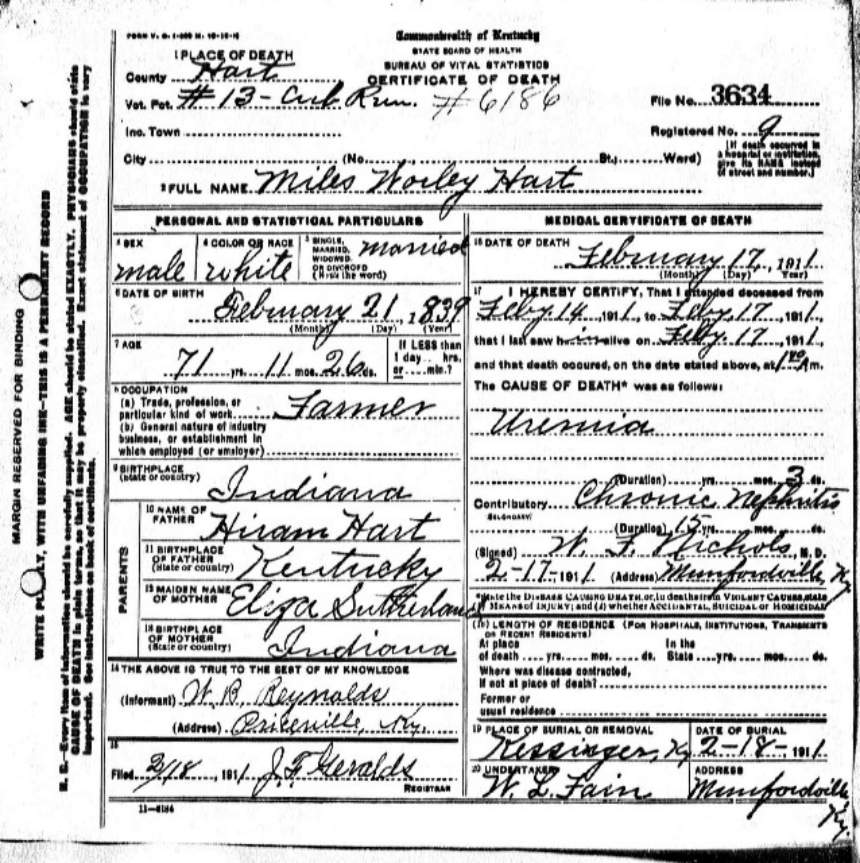 FORM V. S. 1-
Commonwealth of Kentucky
STATE BOARD OF HEALTH
BUREAU OF VITAL STATISTICS
CERTIFICATE OF DEATH
1 PLACE OF DEATH
County Hart
Vot. Pct. # 13 - Cub Run. # 6186
File No. 3634
Inc. Town
Registered No. 9
City (No. , St.; Ward)
[If death occurred in
a hospital or institution,
give its NAME instead
of street and number.]
2 FULL NAME Miles Worley Hart
PERSONAL AND STATISTICAL PARTICULARS
3 SEX
male
4 COLOR OR RACE
white
5 SINGLE,
MARRIED,
WIDOWED
OR DIVORCED
(Write the word)
married
6 DATE OF BIRTH
February 21, 1839
(Month) (Day) (Year)
7 AGE
71 yrs. 11 mos. 26 ds.
If LESS than
1 day... hrs.
or ... min.?
8 OCCUPATION
(a) Trade, profession, or
particular kind of work Farmer
(b) General nature of industry
business, or establishment in
which employed (or employer)
9 BIRTHPLACE
(State or country)
Indiana
PARENTS
10 NAME OF
FATHER
Hiram Hart
11 BIRTHPLACE
OF FATHER
(State or country)
Kentucky
12 MAIDEN NAME
OF MOTHER
Eliza Sutherland
13 BIRTHPLACE
OF MOTHER
(State or country)
Indiana
14 THE ABOVE IS TRUE TO THE BEST OF MY KNOWLEDGE
(Informant) W. B. Reynolds
(Address) Priceville, Ky.
15
Filed 2/18, 1911 J. F. Geralds
REGISTRAR
11-6184
MEDICAL CERTIFICATE OF DEATH
16 DATE OF DEATH
February 17, 1911
(Month) (Day) Year)
17 I HEREBY CERTIFY, That I attended deceased from
Feby. 14, 1911, to Feby. 17, 1911,
that I last saw him alive on Feby. 17, 1911,
and that death occured, on the date stated above, at m.
The CAUSE OF DEATH* was as follows:
Uremia
(Duration) yrs. mos. 3 ds.
Contributory Chronic Nephritis
SECONDARY
(Duration) 15 yrs. mos. ds.
(Signed) W. F. Nichols, M. D.
2-17-1911 (Address) Munfordville, Ky
*State the DISEASE CAUSING DEATH, or, in deaths from VIOLENT CAUSES, state
MEANS OF INJURY; and (2) whether ACCIDENTAL, SUICIDAL or HOMICIDAL
18 LENGTH OF RESIDENCE (FOR HOSPITALS, INSTITUTIONS, TRANSIENTS
OR RECENT RESIDENTS)
At place In the
of death .... yrs. mos. ds. State .... yrs. mos. ds.
Where was disease contracted,
if not at place of death?
Former or
usual residence
19 PLACE OF BURIAL OR REMOVAL
Kessinger, Ky
DATE OF BURIAL
2-18-1911
20 UNDERTAKER
W. L. Fain
ADDRESS
Munfordville
Ky.
MARGIN RESERVED FOR BINDING
WRITE PLAINLY, WITH UNFADING INK—THIS IS A PERMANENT RECORD
N. B.—Every item of information should be carefully supplied. AGE should be stated EXACTLY. PHYSICIANS should state
CAUSE OF DEATH in plain terms, so that it may be properly classified. Exact statement of OCCUPATION is very
important. See instructions on back of certificate.